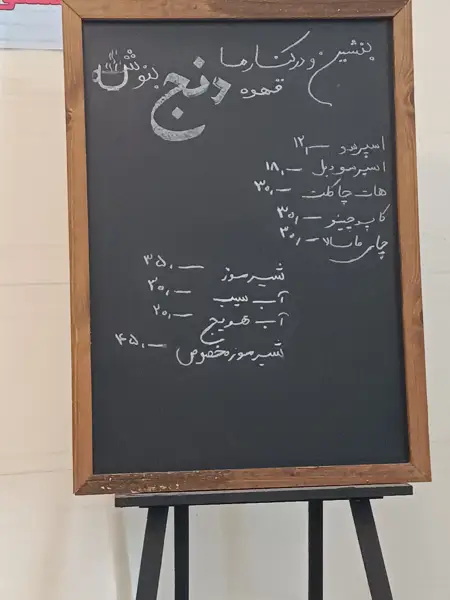 بنشین و در کنار ما
قهوه دنج بنوش
اسپرسو ۱۲,۰۰۰
اسپرسو دبل ۱۸,۰۰۰
هات چاکلت ۳۰,۰۰۰
کاپوچینو ۳۰,۰۰۰
چای ماسالا ۳۰,۰۰۰
شیر موز ۳۵,۰۰۰
آب سیب ۳۰,۰۰۰
آب هویج ۲۰,۰۰۰
شیر موز مخصوص ۴۵,۰۰۰